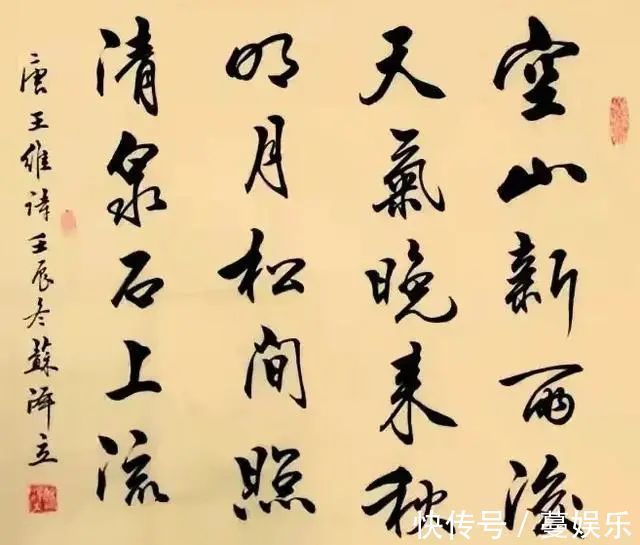 空山新雨後
天氣晚来秋
明月松间照
清泉石上流
唐王维诗壬辰冬苏泽立
快传号/蔓娱乐